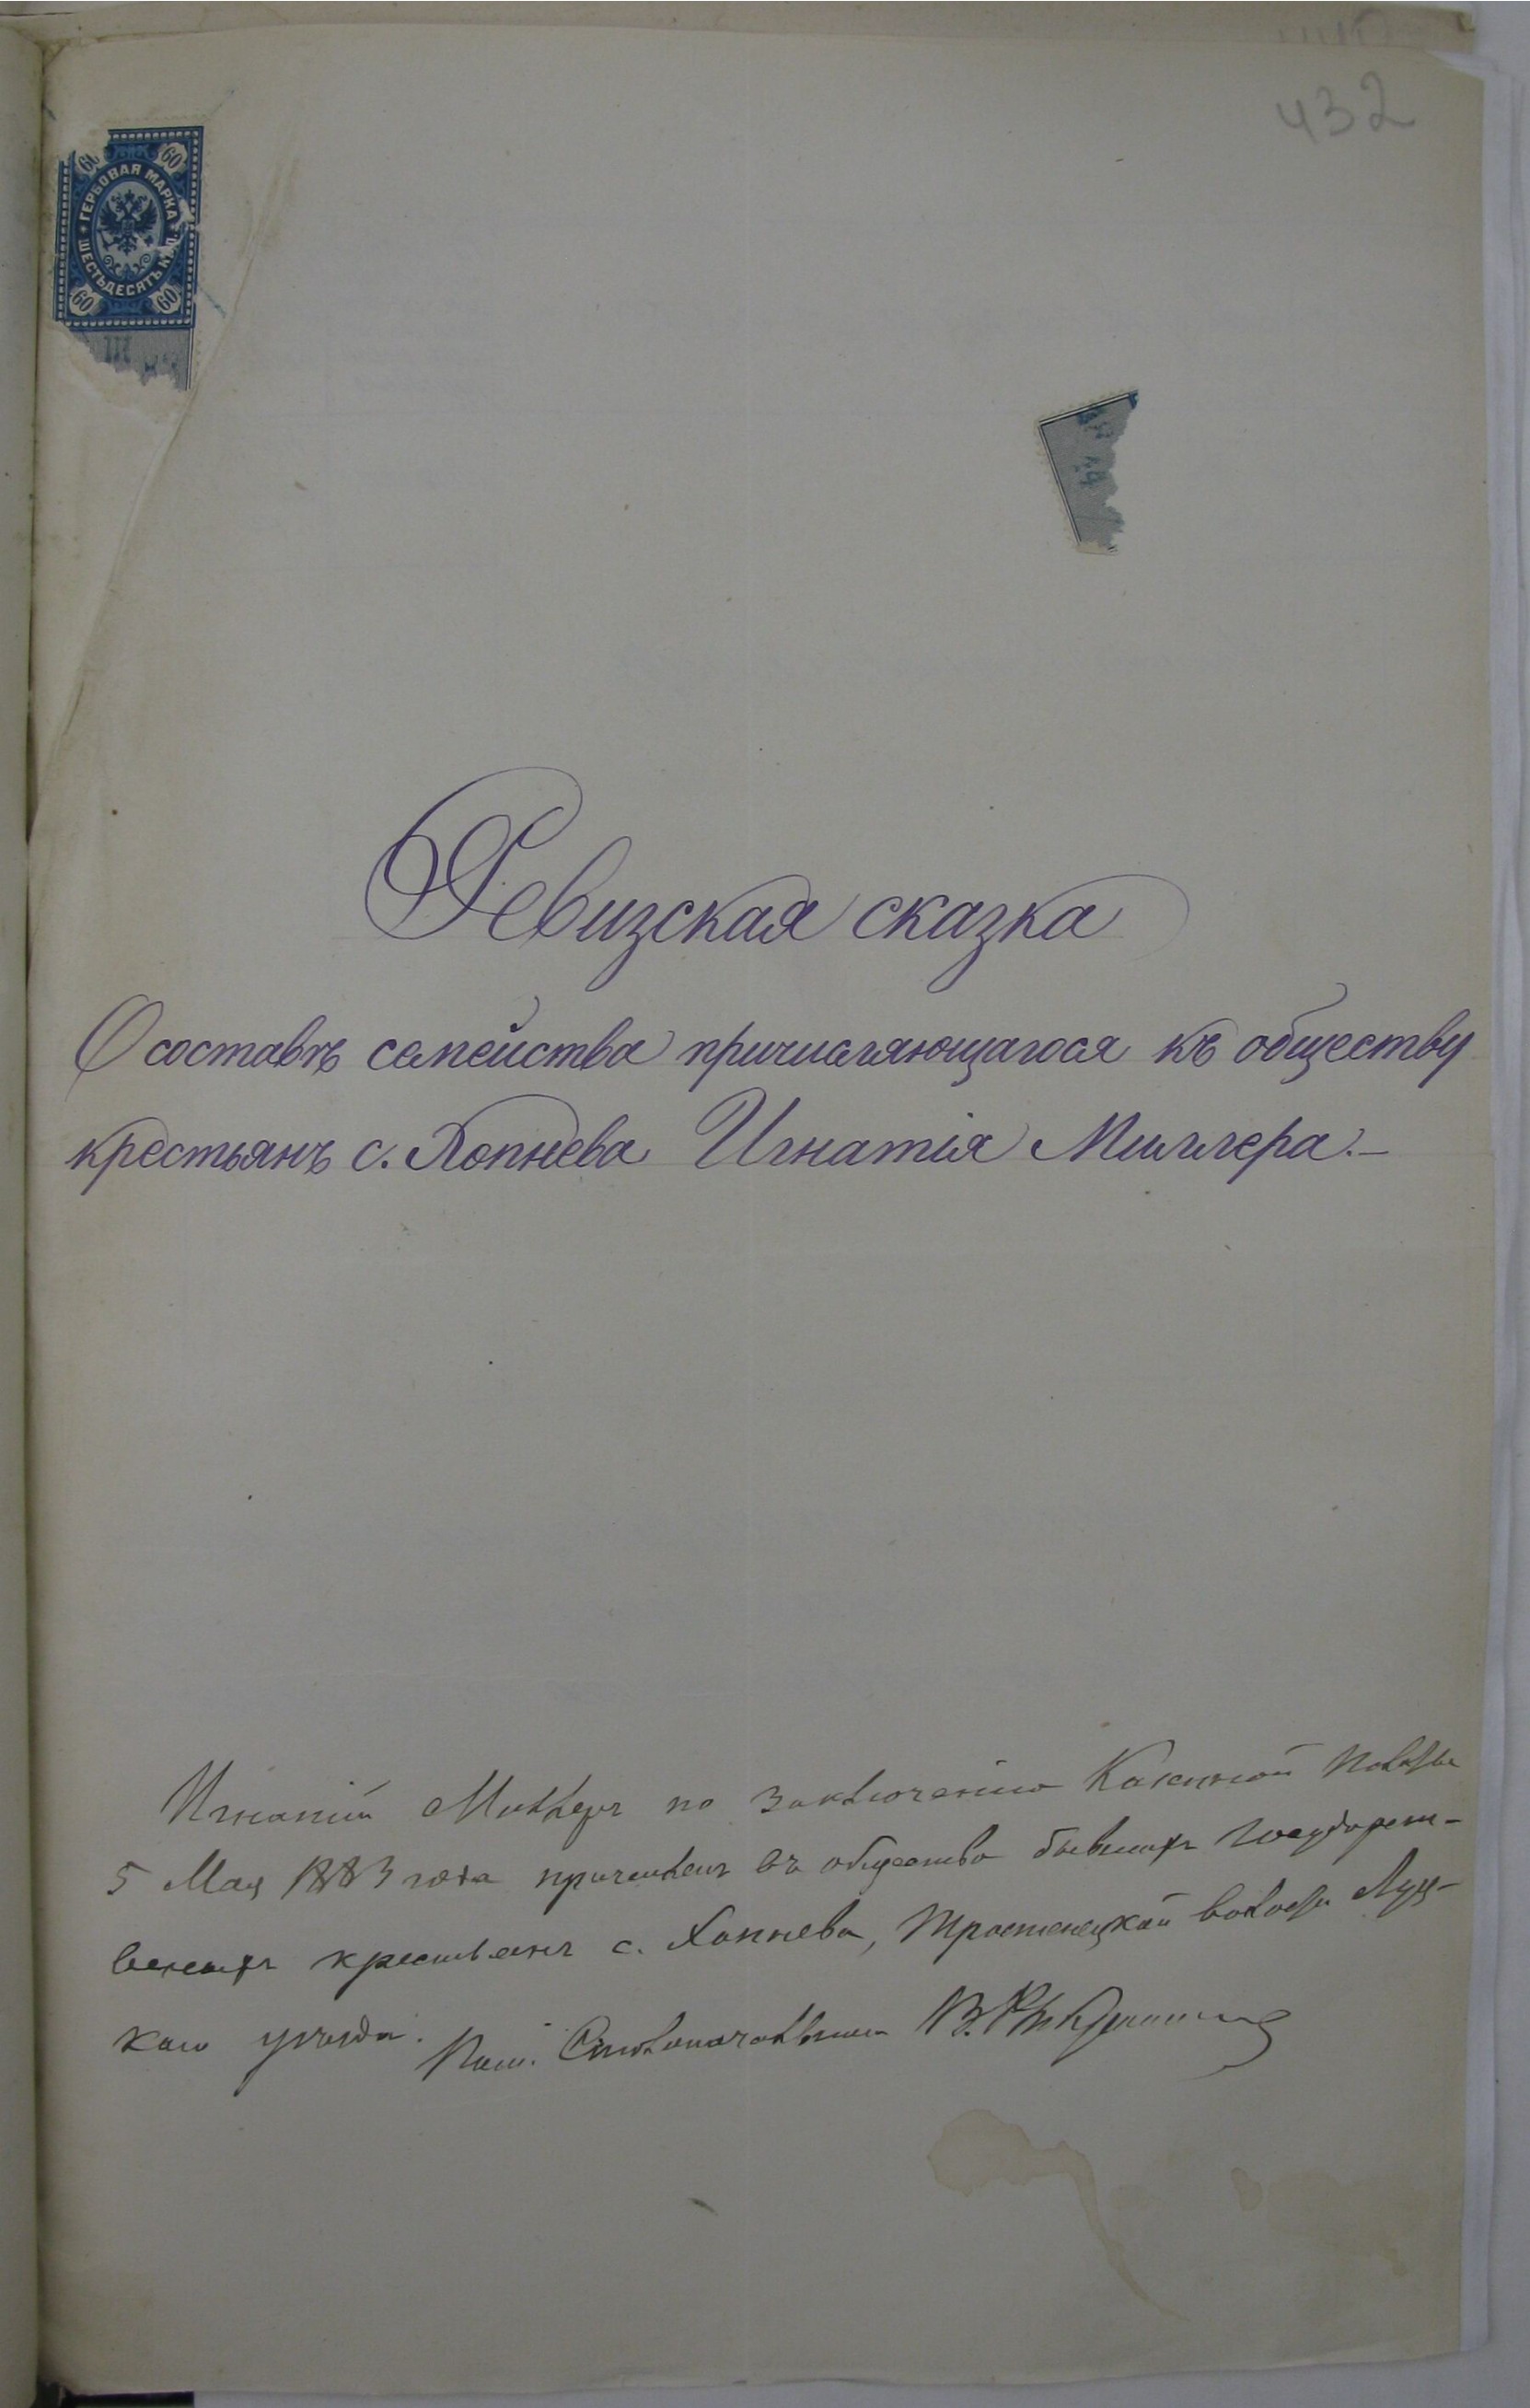 432
60 60
ГЕРБОВАЯ МАРКА
ШЕСТЬДЕСЯТЪ КОП.
60 60
Ревизская сказка
О составѣ семейства причисляющагося къ обществу
крестьянъ с. Хопнева Игнатія Миллера.—
Игнатій Миллеръ по заключенію Казенной Палаты
5 Мая 1883 года причисленъ въ общество бывшихъ Государст-
венныхъ крестьянъ с. Хопнева, Тростенецкой волости Луц-
каго уѣзда.
Пом. Столоначальника В.